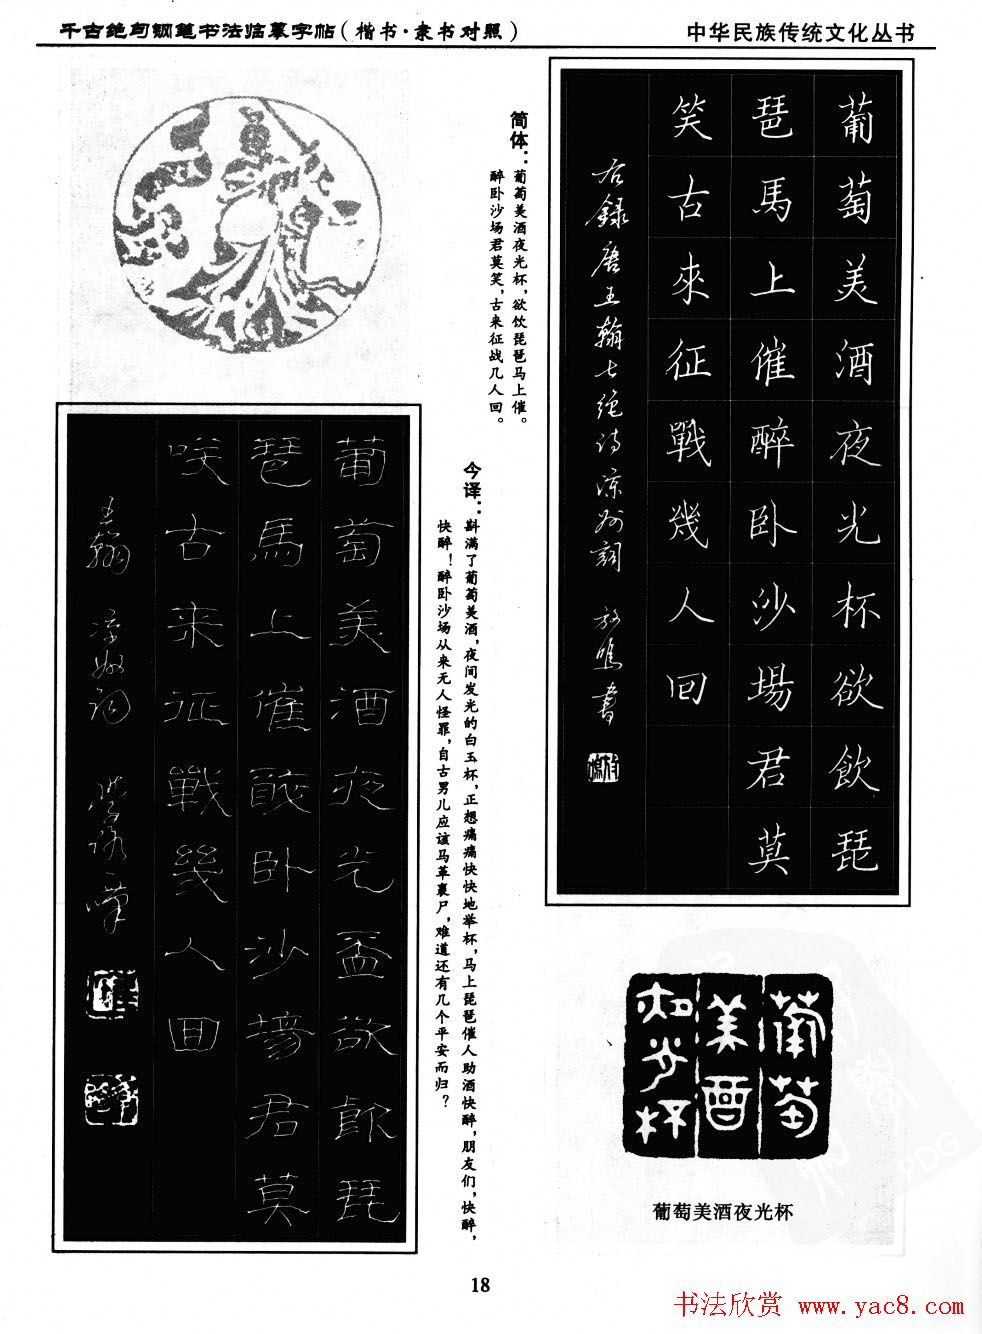 千古绝句钢笔书法临摹字帖(楷书·隶书对照)
中华民族传统文化丛书
葡萄美酒夜光杯欲飲琵
琶馬上催醉卧沙場君莫
笑古來征戰幾人回
右錄唐王翰七绝诗凉州詞 放鳴書
简体：葡萄美酒夜光杯，欲饮琵琶马上催。
醉卧沙场君莫笑，古来征战几人回。
今译：斟满了葡萄美酒，夜间发光的白玉杯，正想痛痛快快地举杯，马上琵琶催人助酒快醉，朋友们，快醉，
快醉！醉卧沙场从来无人怪罪，自古男儿应该马革裹尸，难道还有几个平安而归？
葡萄美酒夜光盃欲飲琵
琶馬上催醉卧沙場君莫
咲古来征戰幾人回
王翰 凉州词
葡萄
美酒
夜光杯
葡萄美酒夜光杯
18
书法欣赏 www.yac8.com